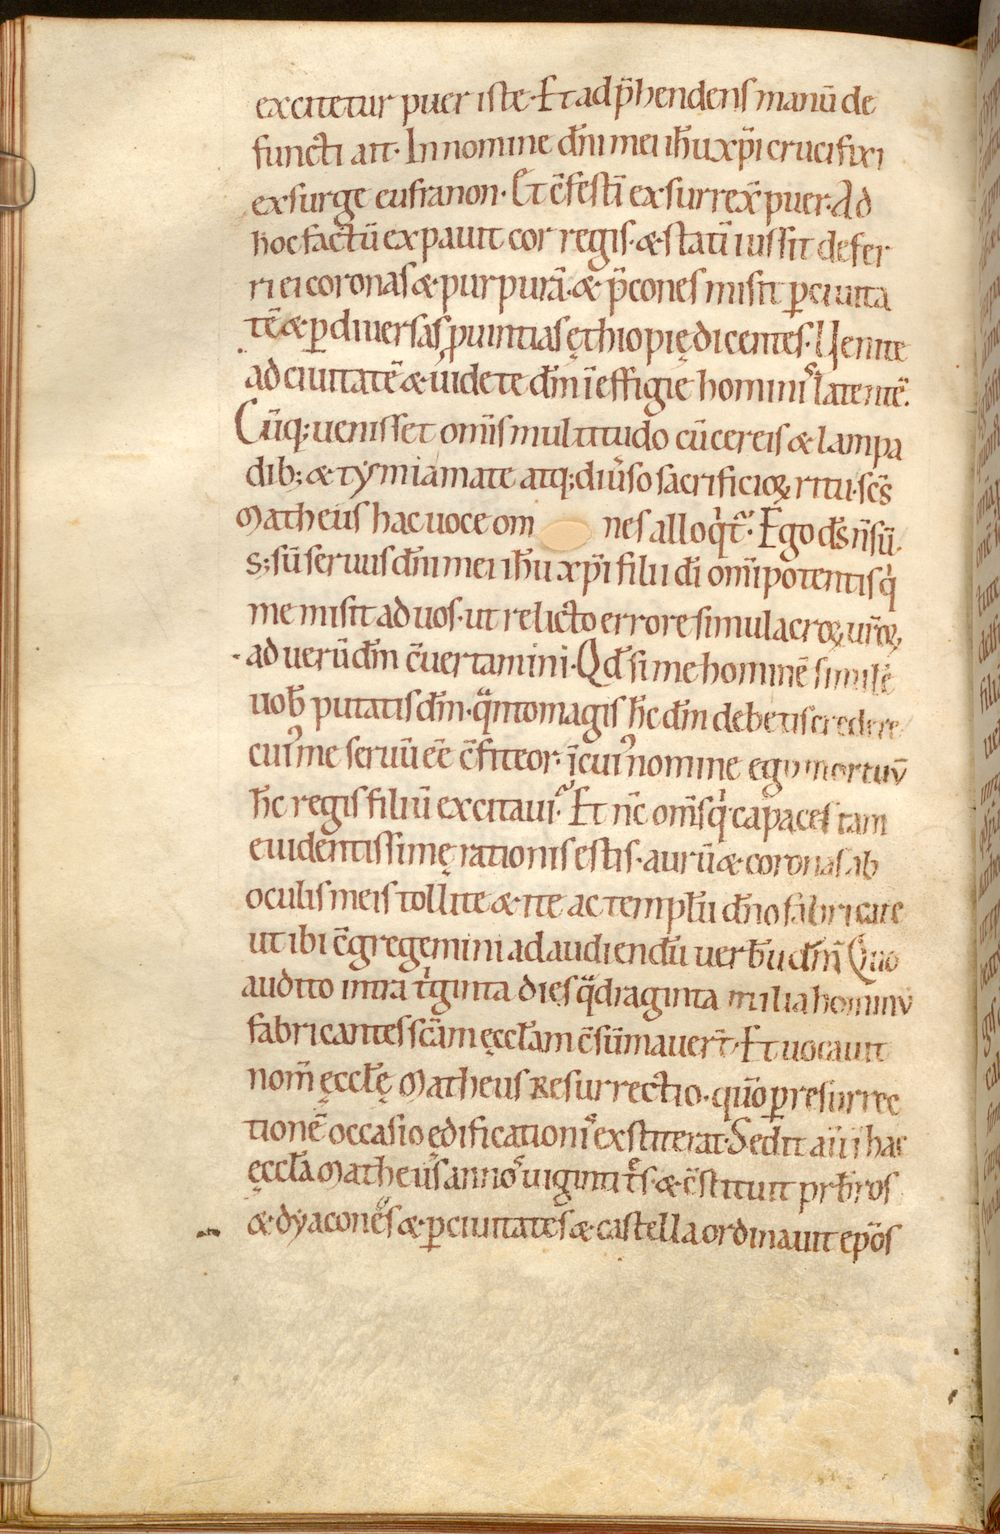 excitetur puer iste. Et adp̃hendens manū de
functi ait. In nomine dñi mei ihũ xp̃i crucifixi
exsurge eufranon. Et c̃festĩ exsurrex̃ puer. Ad
hoc factũ expauit cor regis. & statĩ iussit defer
ri ei coronas & purpurã. & p̃cones misit ꝑ ciuita
tẽ & ꝑ diuersas ꝓuintias ęthiopię dicentes. Uenite
ad ciuitatẽ & uidete dm̃ ĩ effigie hominis latentẽ.
Cũq; uenisset omĩs multitudo cũ cereis & lampa
dib; & tymiamate atq; diũso sacrificioꝝ ritu. scs̃
Matheus hac uoce om nes alloq̇t᷒. Ego ds̃ ñ sũ.
S; sũ seruus dñi mei ihũ xp̃i filii dĩ omĩpotentis q̇
me misit ad uos. ut relicto errore simulacroꝝ ur̃oꝝ
ad uerũ dm̃ c̃uertamini. Qd̃ si me hominẽ similẽ
uob̃ putatis dm̃. q̃nto magis hc̃ dm̃ debetis credere
cuiꝰ me seruũ eẽ c̃fiteor. ĩ cuiꝰ nomine ego mortuũ
hc̃ regis filiũ excitaui. Et nc̃ om̃s q̇ capaces tam
euidentissimę rationis estis. aurũ & coronas ab
oculis meis tollite & ite ac templũ dño fabricate
ut ibi c̃gregemini ad audiendũ uerbũ dñi. Quo
audito intra t̃ginta dies q̃draginta milia hominũ
fabricantes scãm ęccl̃am c̃sũmauer̃t. Et uocauit
nom̃ ęccl̃ę Matheus Resurrectio. quõ ꝑ resurrec
tionẽ occasio ędificationis exstiterat. Sedit aũ ĩ hac
ęccl̃a Matheus annos uiginti tr̃s. & c̃stituit prb̃ros
& dyacones & ꝑ ciuitates & castella ordinauit ep̃os